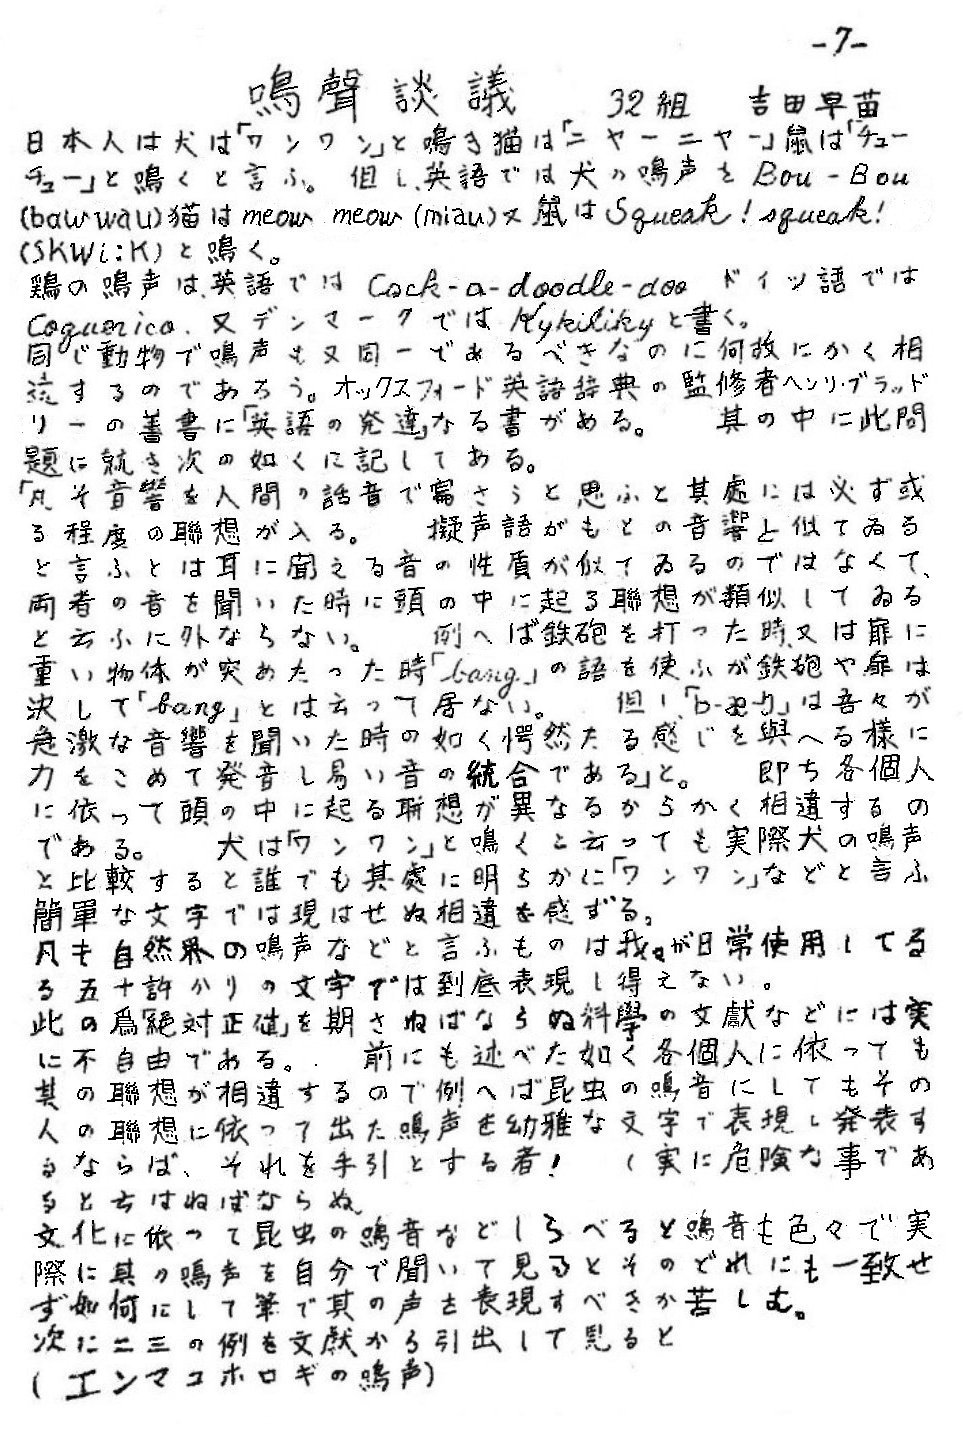 -7-
鳴聲談議 32組 吉田早苗
日本人は犬は「ワンワン」と鳴き猫は「ニヤーニヤー」鼠は「チュー
チュー」と鳴くと言ふ。但し、英語では犬の鳴声を Bou-Bou
(bauwau)猫は meow meow (miau)又鼠は Squeak! squeak!
(SKWi:K)と鳴く。
鶏の鳴声は、英語では Cock-a-doodle-doo ドイツ語では
Coquerico. 又デンマークでは Kykiliky と書く。
同じ動物で鳴声も又同一であるべきなのに何故にかく相
違するのであろう。オックスフォード英語辞典の監修者ヘンリ・ブラッド
リーの著書に「英語の発達」なる書がある。 其の中に此問
題に就き次の如くに記してある。
「凡そ音響を人間の話音で寫さうと思ふと其處には必ず或
る程度の聯想が入る。 擬声語がもとの音響と似てゐる
と言ふとは耳に聞える音の性質が似てゐるのではなくて、
両者の音を聞いた時に頭の中に起る聯想が類似してゐる
と云ふに外ならない。 例へば鉄砲を打った時、又は扉に
重い物体が突あたった時「bang」の語を使ふが鉄砲や扉は
決して「bang」とは云って居ない。 但し、「b-æ-ŋ」は吾々が
急激な音響を聞いた時の如く愕然たる感じを與へる様に
力をこめて発音し易い音の統合である」と。 即ち各個人
に依って頭の中に起る聯想が異なるからかく相違するの
である。 犬は「ワンワン」と鳴くと云っても実際犬の鳴声
と比較すると誰でも其處に明らかに「ワンワン」などと言ふ
簡單な文字では現はせぬ相違を感ずる。
凡そ自然界の鳴声などと言ふものは我々が日常使用してる
る五十許かりの文字では到底表現し得えない。
此の爲「絕対正値」を期さねばならぬ科學の文献などには実
に不自由である。 前にも述べた如く各個人に依っても
其の聯想が相違するので例へば昆虫の鳴音にしてもその
人の聯想に依って出た鳴声を幼雅な文字で表現し発表す
るならば、それを手引とする者! (実に危険な事であ
ると云はねばならぬ。
文化に依って昆虫の鳴音などしらべると鳴音も色々で実
際に其の鳴声を自分で聞いて見るとそのどれにも一致せ
ず如何にして筆で其の声を表現すべきか苦しむ。
次に二三の例を文献から引出して見ると
(エンマコホロギの鳴声)